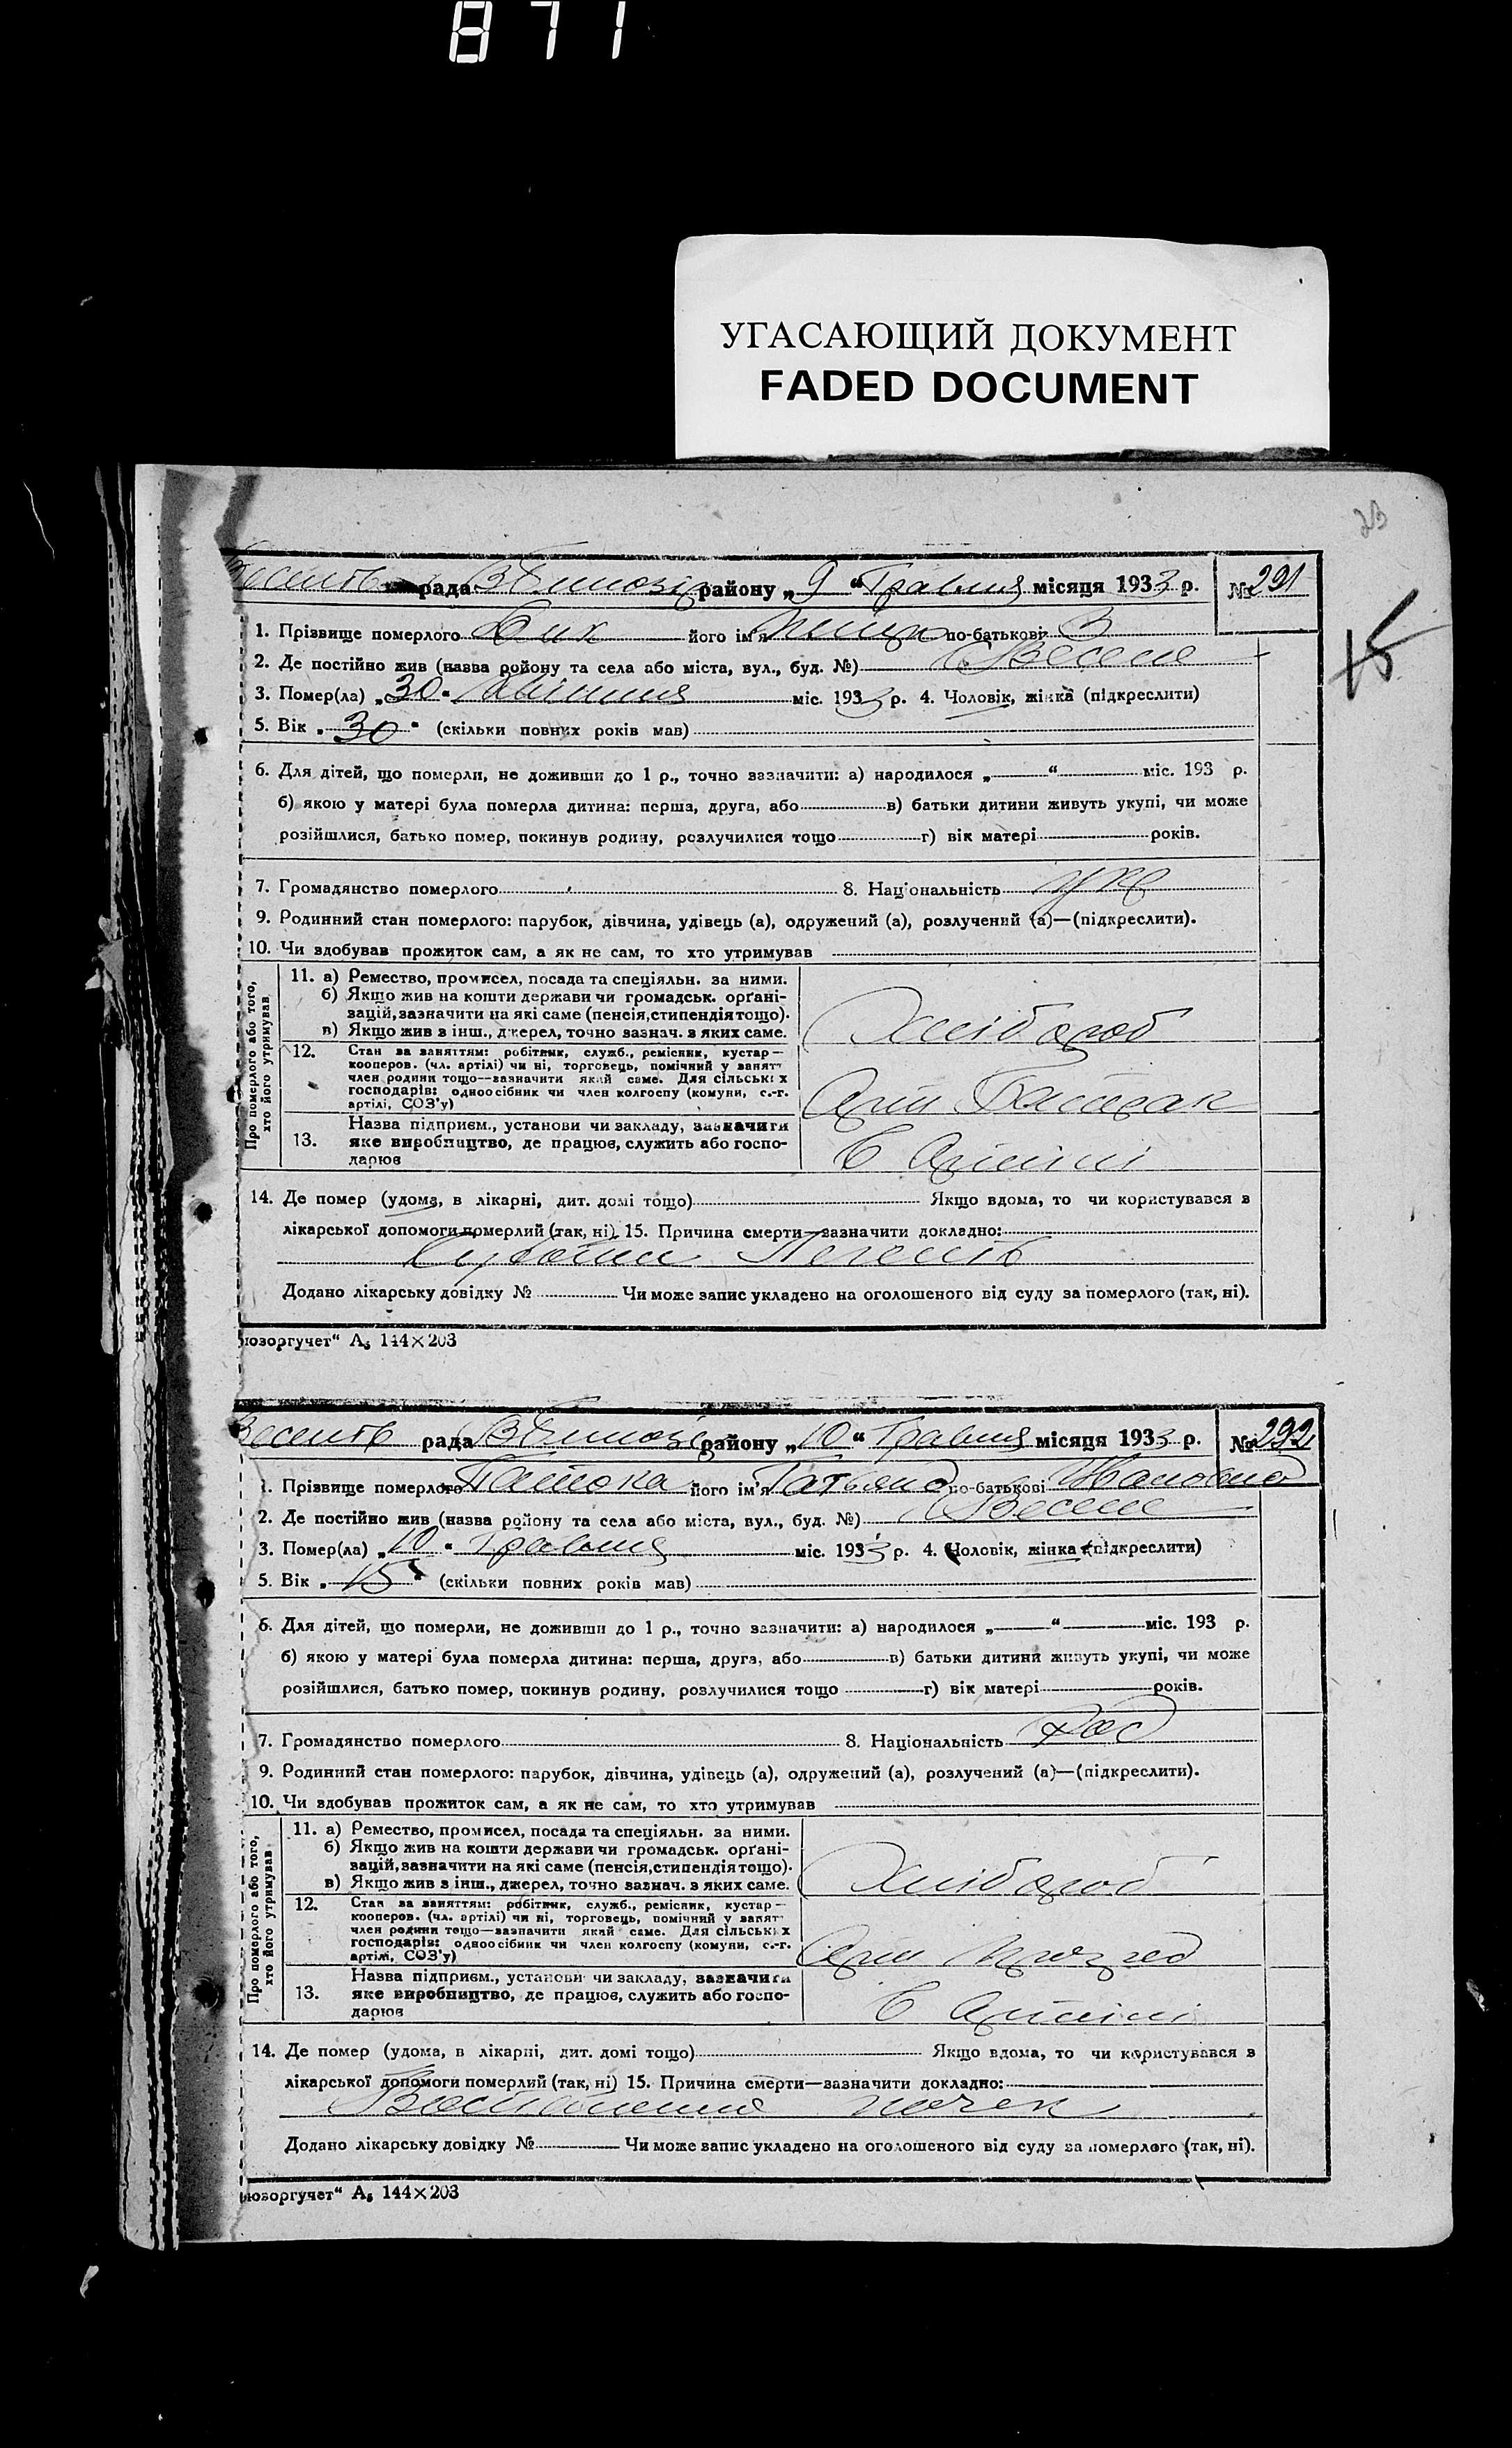 871
УГАСАЮЩИЙ ДОКУМЕНТ
FADED DOCUMENT
рада району „ 9 “ Травня місяця 1933 р. № 291
1. Прізвище померлого його ім'я по-батькові З
2. Де постійно жив (назва району та села або міста, вул., буд. №) с. Веселе
3. Помер(ла) „ 30 “ Квітня міс. 1933 р. 4. Чоловік, жінка (підкреслити)
15
5. Вік „ 30 “ (скільки повних років мав)
6. Для дітей, що померли, не доживши до 1 р., точно зазначити: а) народилося „ “ міс. 193 р.
б) якою у матері була померла дитина: перша, друга, або в) батьки дитини живуть укупі, чи може
розійшлися, батько помер, покинув родину, розлучилися тощо г) вік матері років.
7. Громадянство померлого 8. Національність укр
9. Родинний стан померлого: парубок, дівчина, удівець (а), одружений (а), розлучений (а)—(підкреслити).
10. Чи здобував прожиток сам, а як не сам, то хто утримував
Про померлого або того, хто його утримував
11. а) Ремество, промисел, посада та спеціяльн. за ними.
б) Якщо жив на кошти держави чи громадськ. орґані-
зацій, зазначити на які саме (пенсія, стипендія тощо).
в) Якщо жив з інш., джерел, точно зазнач. з яких саме.
Хлібороб
12. Стан за заняттям: робітник, служб., ремісник, кустар—
кооперов. (чл. артілі) чи ні, торговець, помічний у занятт
член родини тощо—зазначити який саме. Для сільських
господарів: одноосібник чи член колгоспу (комуни, с.-г.
артілі, СОЗ'у)
Арт
13. Назва підприєм., установи чи закладу, зазначити
яке виробництво, де працює, служить або госпо-
дарює
В Артілі
14. Де помер (удома, в лікарні, дит. домі тощо) Якщо вдома, то чи користувався з
лікарської допомоги померлий (так, ні) 15. Причина смерти—зазначити докладно:
Додано лікарську довідку № Чи може запис укладено на оголошеного від суду за померлого (так, ні).
юзоргучет“ А₅ 144×203
рада району „ 10 “ Травня місяця 1933 р. № 292
1. Прізвище померлого Патока його ім'я Татьяна по-батькові
2. Де постійно жив (назва району та села або міста, вул., буд. №) с. Веселе
3. Помер(ла) „ 10 “ Травня міс. 1933 р. 4. Чоловік, жінка (підкреслити)
5. Вік „ 15 “ (скільки повних років мав)
6. Для дітей, що померли, не доживши до 1 р., точно зазначити: а) народилося „ “ міс. 193 р.
б) якою у матері була померла дитина: перша, друга, або в) батьки дитини живуть укупі, чи може
розійшлися, батько помер, покинув родину, розлучилися тощо г) вік матері років.
7. Громадянство померлого 8. Національність рос
9. Родинний стан померлого: парубок, дівчина, удівець (а), одружений (а), розлучений (а)—(підкреслити).
10. Чи здобував прожиток сам, а як не сам, то хто утримував
Про померлого або того, хто його утримував
11. а) Ремество, промисел, посада та спеціяльн. за ними.
б) Якщо жив на кошти держави чи громадськ. орґані-
зацій, зазначити на які саме (пенсія, стипендія тощо).
в) Якщо жив з інш., джерел, точно зазнач. з яких саме.
Хлібороб
12. Стан за заняттям: робітник, служб., ремісник, кустар—
кооперов. (чл. артілі) чи ні, торговець, помічний у занятт
член родини тощо—зазначити який саме. Для сільських
господарів: одноосібник чи член колгоспу (комуни, с.-г.
артілі, СОЗ'у)
Арт
13. Назва підприєм., установи чи закладу, зазначити
яке виробництво, де працює, служить або госпо-
дарює
В Артілі
14. Де помер (удома, в лікарні, дит. домі тощо) Якщо вдома, то чи користувався з
лікарської допомоги померлий (так, ні) 15. Причина смерти—зазначити докладно:
почек
Додано лікарську довідку № Чи може запис укладено на оголошеного від суду за померлого (так, ні).
юзоргучет“ А₅ 144×203